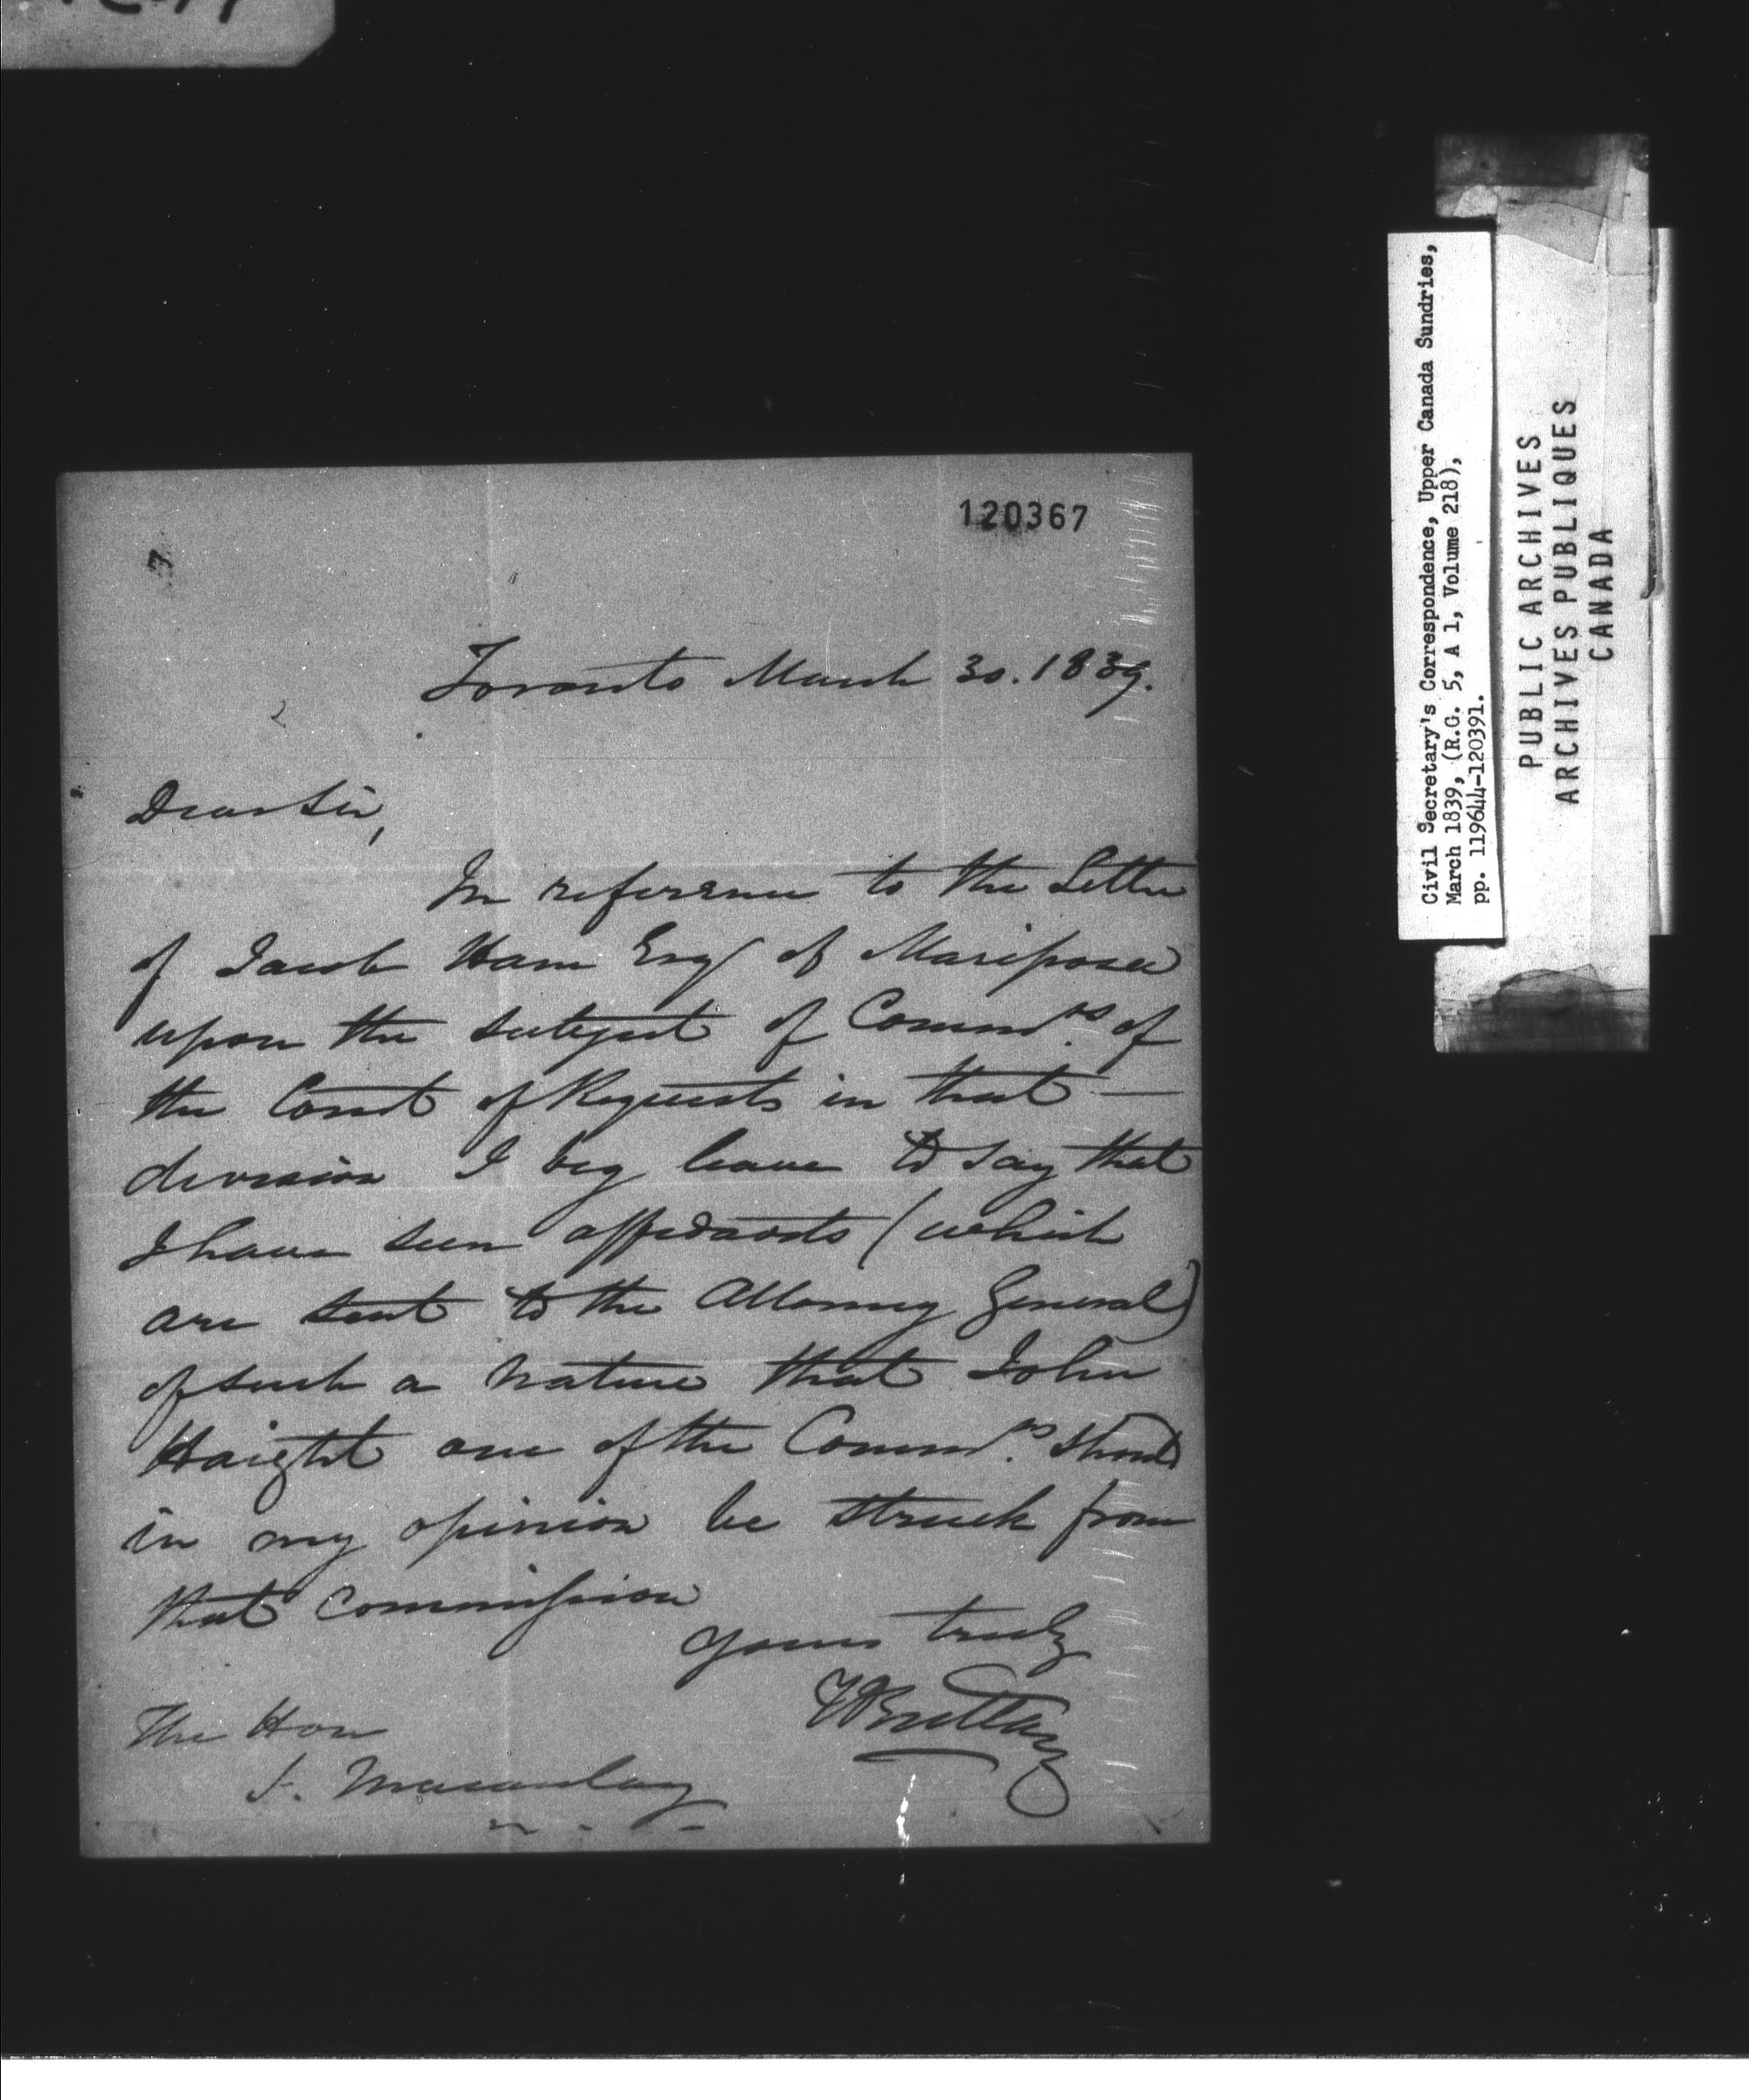 120367
Toronto March 30. 1839.
Dear Sir,
In reference to the Letter
of Jacob Ham Esq of Mariposa
upon the subject of Commrs. of
the Court of Requests in that —
division I beg leave to say that
I have seen affidavits (which
are sent to the Attorney General)
of such a nature that John
Haight one of the Commrs. should
in my opinion be struck from
that Commission
Yours truly
The Hon
J. Macaulay
Civil Secretary's Correspondence, Upper Canada Sundries,
March 1839, (R.G. 5, A 1, Volume 218),
pp. 119644-120391.
PUBLIC ARCHIVES
ARCHIVES PUBLIQUES
CANADA